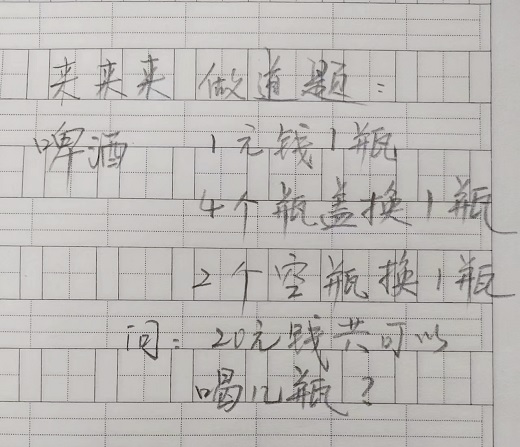 来来来 做道题:
啤酒 1元钱1瓶
4个瓶盖换1瓶
2个空瓶换1瓶
问: 20元钱共可以
喝几瓶?